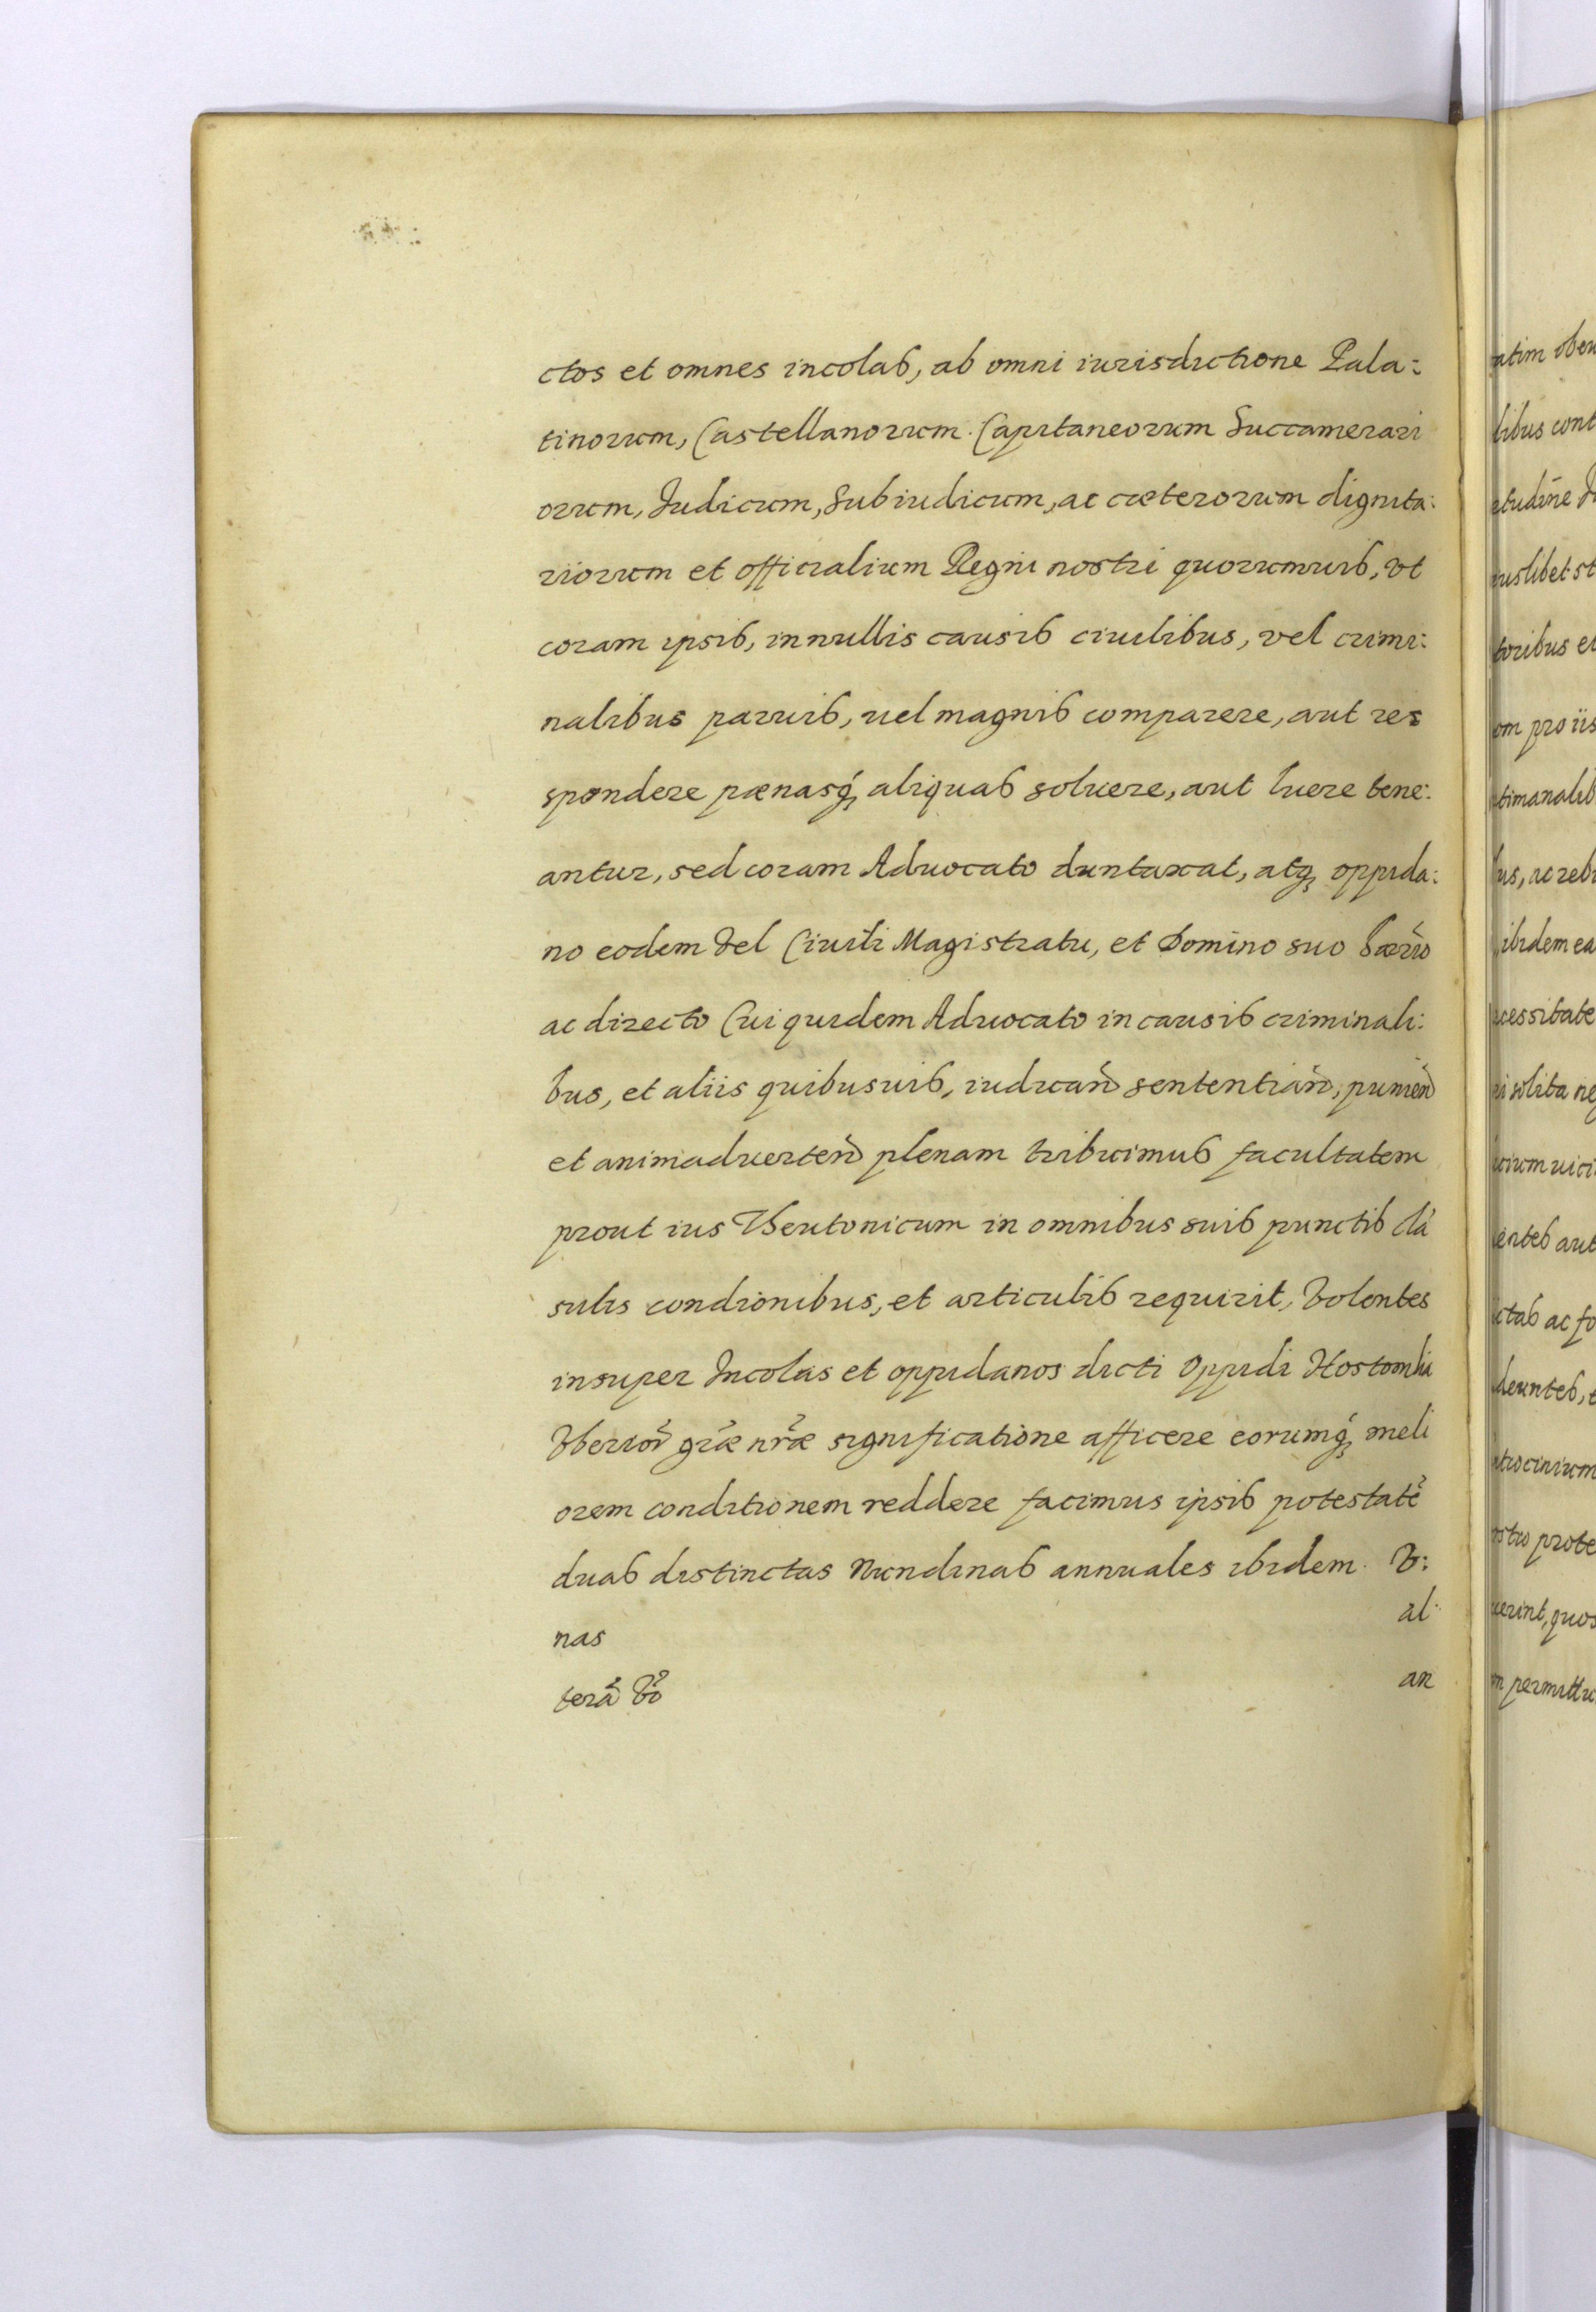 ctos et omnes incolas, ab omni iurisdictione Pala:
tinorum, Castellanorum. Capitaneorum Succamerari
orum, Iudicum, Subiudicum, ac cæterorum dignita:
riorum et officialium Regni nostri quorumuis, vt
coram ipsis, in nullis causis ciuilibus, vel crimi:
nalibus paruis, uel magnis comparere, aut res
spondere pænasq́ aliquas soluere, aut luere tene:
antur, sed coram Aduocato duntaxat, atq oppida:
no eodem vel Ciuili Magistratu, et Domino suo
ac directo Cui quidem Aduocato in causis criminali:
bus, et aliis quibusuis, iudican̄d sententian̄d, punien̄d
et animaduerten̄d plenam tribuimus facultatem
prout ius Theutonicum in omnibus suis punctis clā
sulis condionibus, et articulis requirit, Volentes
insuper Incolas et oppidanos dicti Oppidi Hostomlia
Vberior̃ gr̃æ nr̃æ significatione afficere eorumq́ meli
orem conditionem reddere facimus ipsis potestatẽ
duas distinctas Nundinas annuales ibidem. V:
nas al:
terã Vo᷈ an